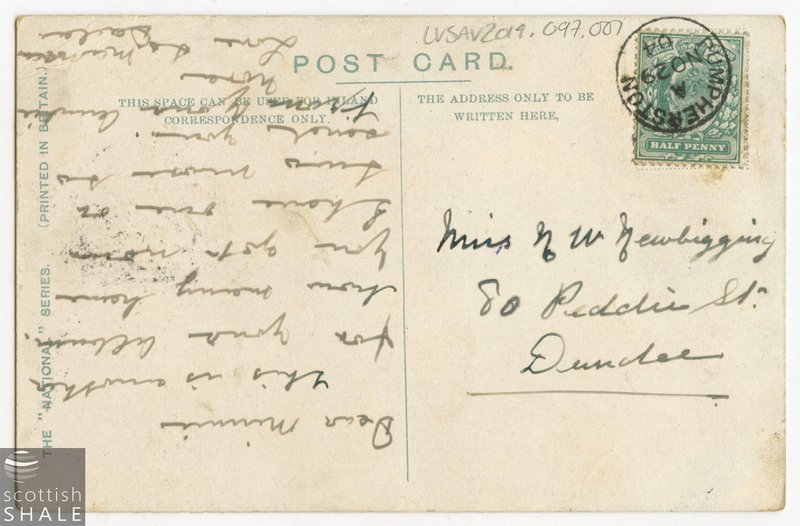 LVSAV2019.097.001
POST CARD.
THIS SPACE CAN BE USED FOR INLAND
CORRESPONDENCE ONLY.
THE ADDRESS ONLY TO BE
WRITTEN HERE,
PUMPHERSTON
A
NO 29
04
HALF PENNY
Miss N W Newbigging
80 Peddie St.
Dundee
Dear Minnie
this is another
for your album.
how many have
you got now
I have one or
two more to
send you.
Love to
THE "NATIONAL" SERIES. (PRINTED IN BRITAIN.)
scottish
SHALE